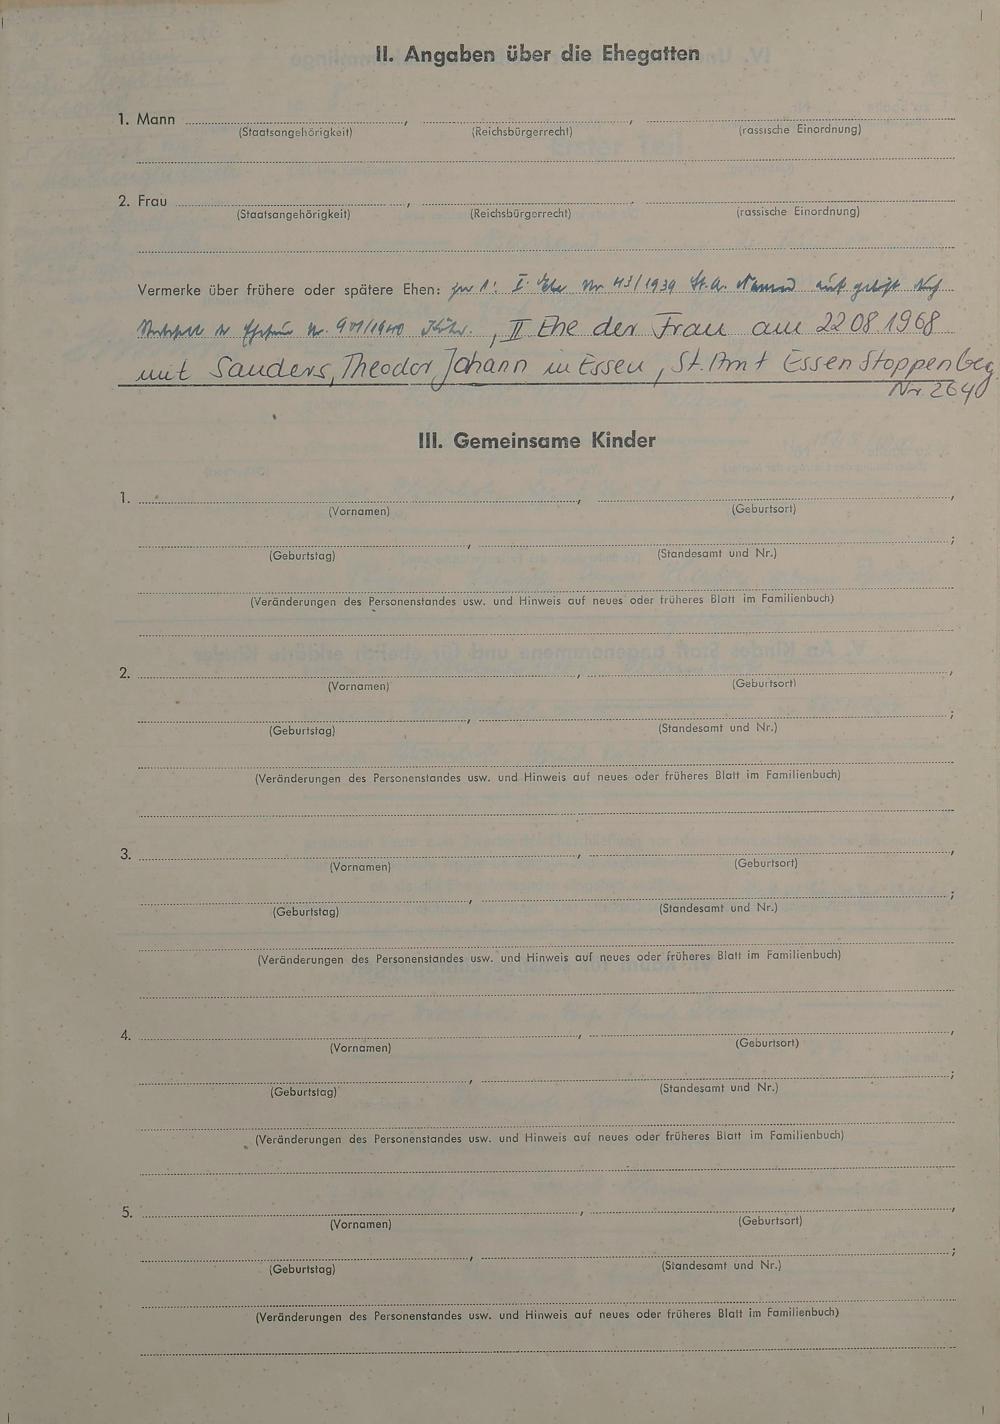 II. Angaben über die Ehegatten
1. Mann , , 
(Staatsangehörigkeit) (Reichsbürgerrecht) (rassische Einordnung)
2. Frau , 
(Staatsangehörigkeit) (Reichsbürgerrecht) (rassische Einordnung)
Vermerke über frühere oder spätere Ehen: I. Ehe Nr 43/1939 St.A.
Nr. 971/1940 , II Ehe der Frau am 22 08 1968
mit Sanders, Theodor Johann in Essen, St. Amt Essen Stoppenbeg
Nr 2640
III. Gemeinsame Kinder
1. , ,
(Vornamen) (Geburtsort)
, ;
(Geburtstag) (Standesamt und Nr.)
(Veränderungen des Personenstandes usw. und Hinweis auf neues oder früheres Blatt im Familienbuch)
2. , ,
(Vornamen) (Geburtsort)
, ;
(Geburtstag) (Standesamt und Nr.)
(Veränderungen des Personenstandes usw. und Hinweis auf neues oder früheres Blatt im Familienbuch)
3. , ,
(Vornamen) (Geburtsort)
, ;
(Geburtstag) (Standesamt und Nr.)
(Veränderungen des Personenstandes usw. und Hinweis auf neues oder früheres Blatt im Familienbuch)
4. , ,
(Vornamen) (Geburtsort)
, ;
(Geburtstag) (Standesamt und Nr.)
(Veränderungen des Personenstandes usw. und Hinweis auf neues oder früheres Blatt im Familienbuch)
5. , ,
(Vornamen) (Geburtsort)
, ;
(Geburtstag) (Standesamt und Nr.)
(Veränderungen des Personenstandes usw. und Hinweis auf neues oder früheres Blatt im Familienbuch)